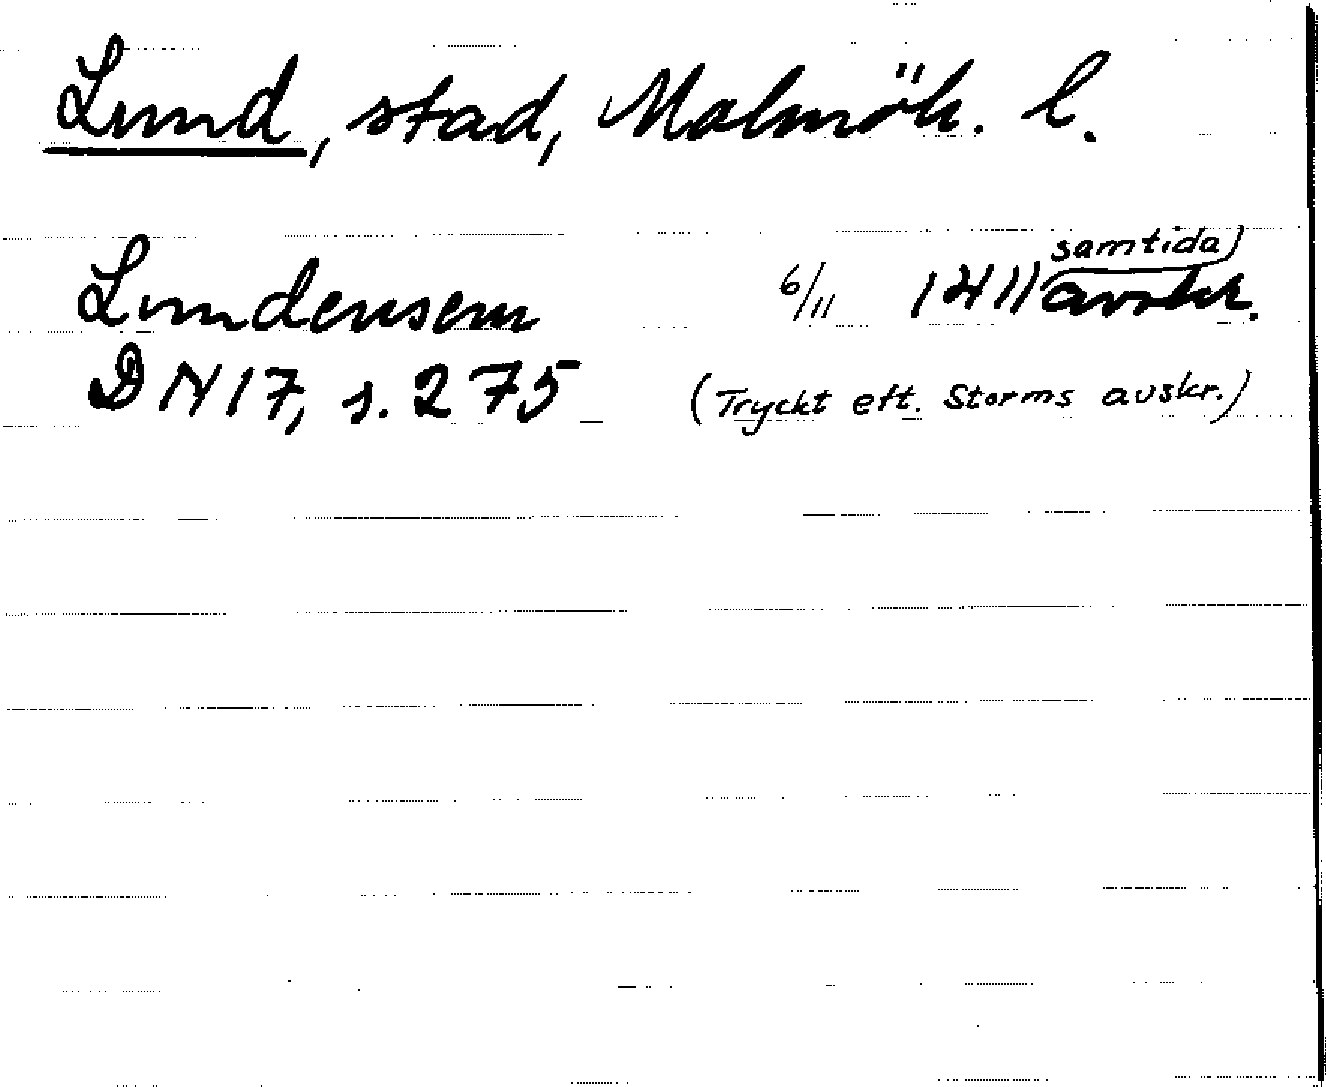 Lund, stad, Malmöh. l.
Lundensem 6/11 1411 samtida avskr.
DN 17, s. 275 (Tryckt eft. Storms avskr.)